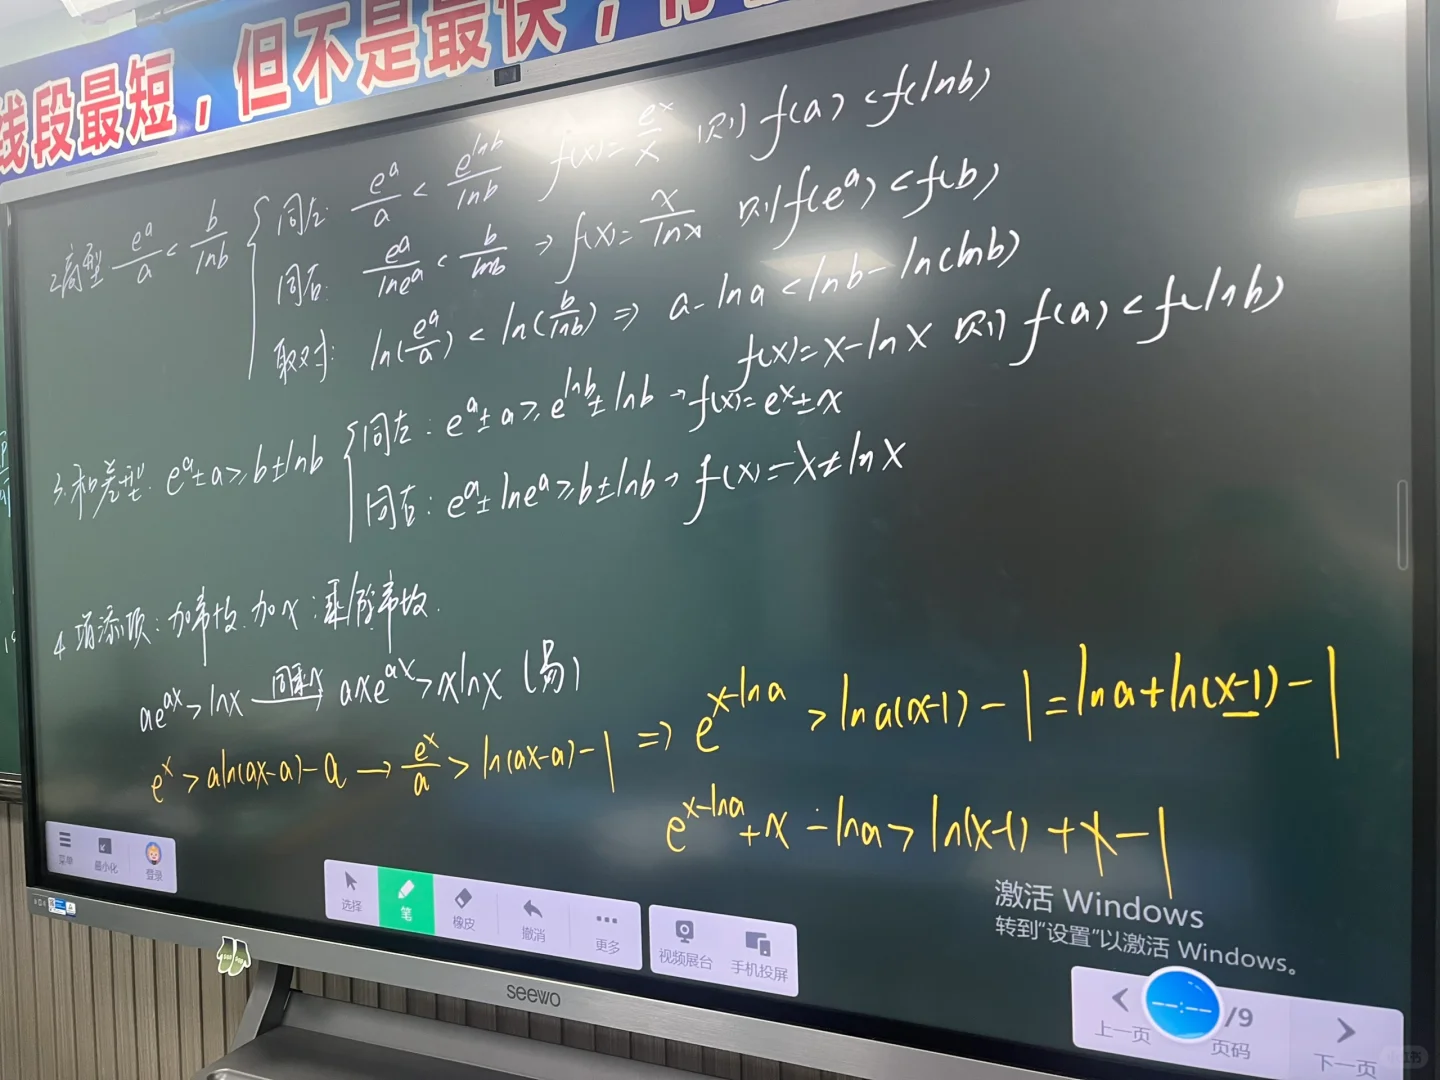 线段最短，但不是最快，
2.商型 e^a/a < b/lnb
同左: e^a/a < e^lnb/lnb f(x)=e^x/x 则 f(a)<f(lnb)
同右: e^a/lne^a < b/lnb ⇒ f(x)=x/lnx 则 f(e^a)<f(b)
取对: ln(e^a/a) < ln(b/lnb) ⇒ a-lna<lnb-ln(lnb)
f(x)=x-lnx 则 f(a)<f(lnb)
3.和差型: e^a±a≥b±lnb
同左: e^a±a≥e^lnb±lnb → f(x)=e^x±x
同右: e^a±lne^a≥b±lnb → f(x)=x±lnx
添项: 加 加x: 乘
ae^ax>lnx 同乘x→ axe^ax>xlnx (易)
e^x>aln(ax-a)-a → e^x/a > ln(ax-a)-1 ⇒ e^(x-lna) > lna(x-1)-1=lna+ln(x-1)-1
e^(x-lna)+x-lna>ln(x-1)+x-1
激活 Windows
转到“设置”以激活 Windows。
菜单
最小化
登录
选择
笔
橡皮
撤消
更多
视频展台
手机投屏
上一页
/9
页码
下一页
seewo